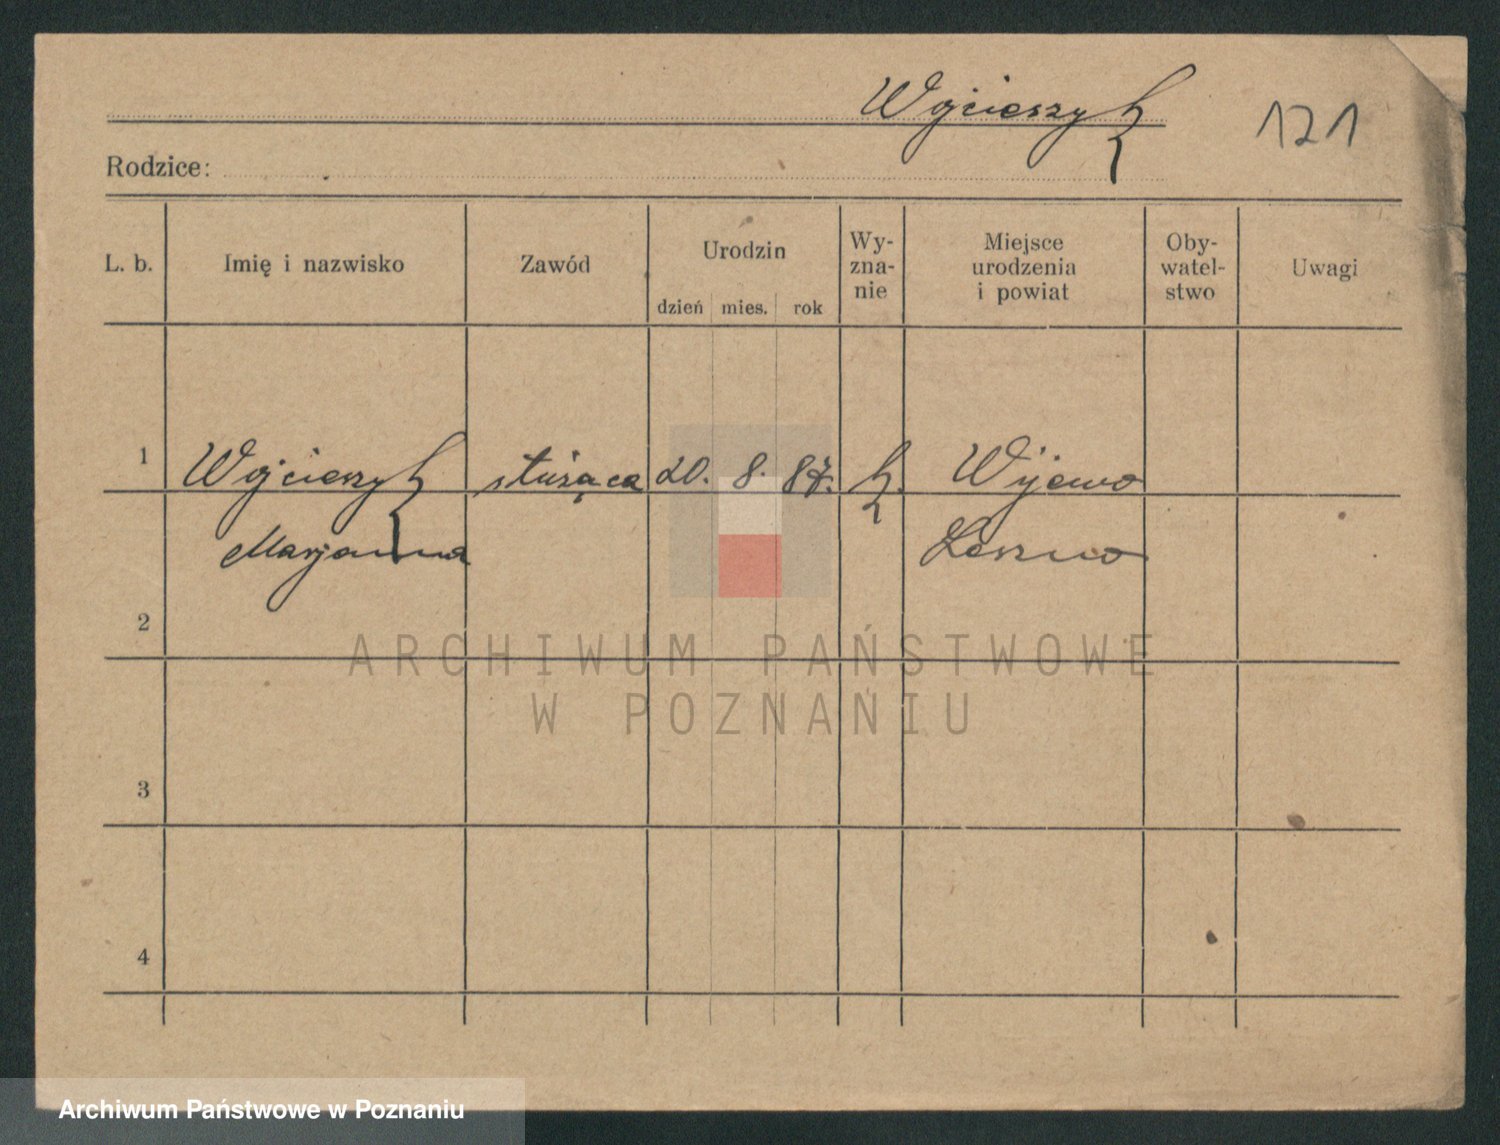 Wojcieszyk
121
Rodzice:
L. b. Imię i nazwisko Zawód Urodzin dzień mies. rok Wyznanie Miejsce urodzenia i powiat Obywatelstwo Uwagi
1 Wojcieszyk służąca 20. 8. 87. k. Wijewo
Marjanna Leszno
2
3
4
ARCHIWUM PAŃSTWOWE
W POZNANIU
Archiwum Państwowe w Poznaniu